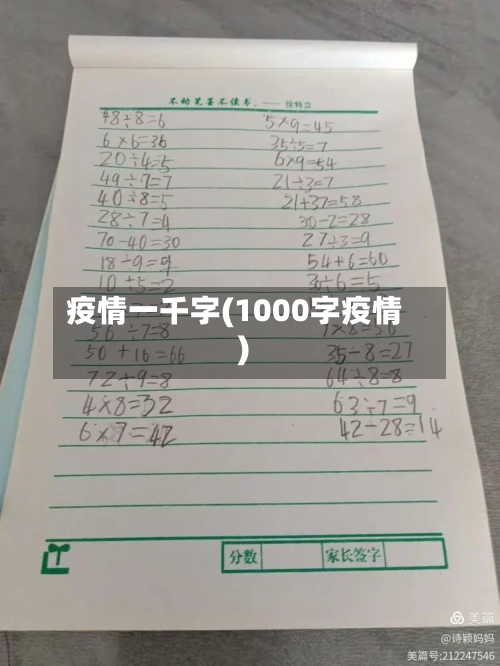 不动笔墨不读书。—— 徐特立
48÷8=6 5×9=45
6×6=36 35÷5=7
20÷4=5 6×9=54
49÷7=7 21÷3=7
40÷8=5 21+37=58
28÷7=4 30-2=28
70-40=30 27÷3=9
18÷9=9 54+6=60
10÷5=2 30÷6=5
疫情一千字(1000字疫情
)
56÷7=8
50+16=66 35-8=27
72÷9=8 64÷8=8
4×8=32 63÷7=9
6×7=42 42-28=14
分数 家长签字
美篇
@诗颖妈妈
美篇号:212247546